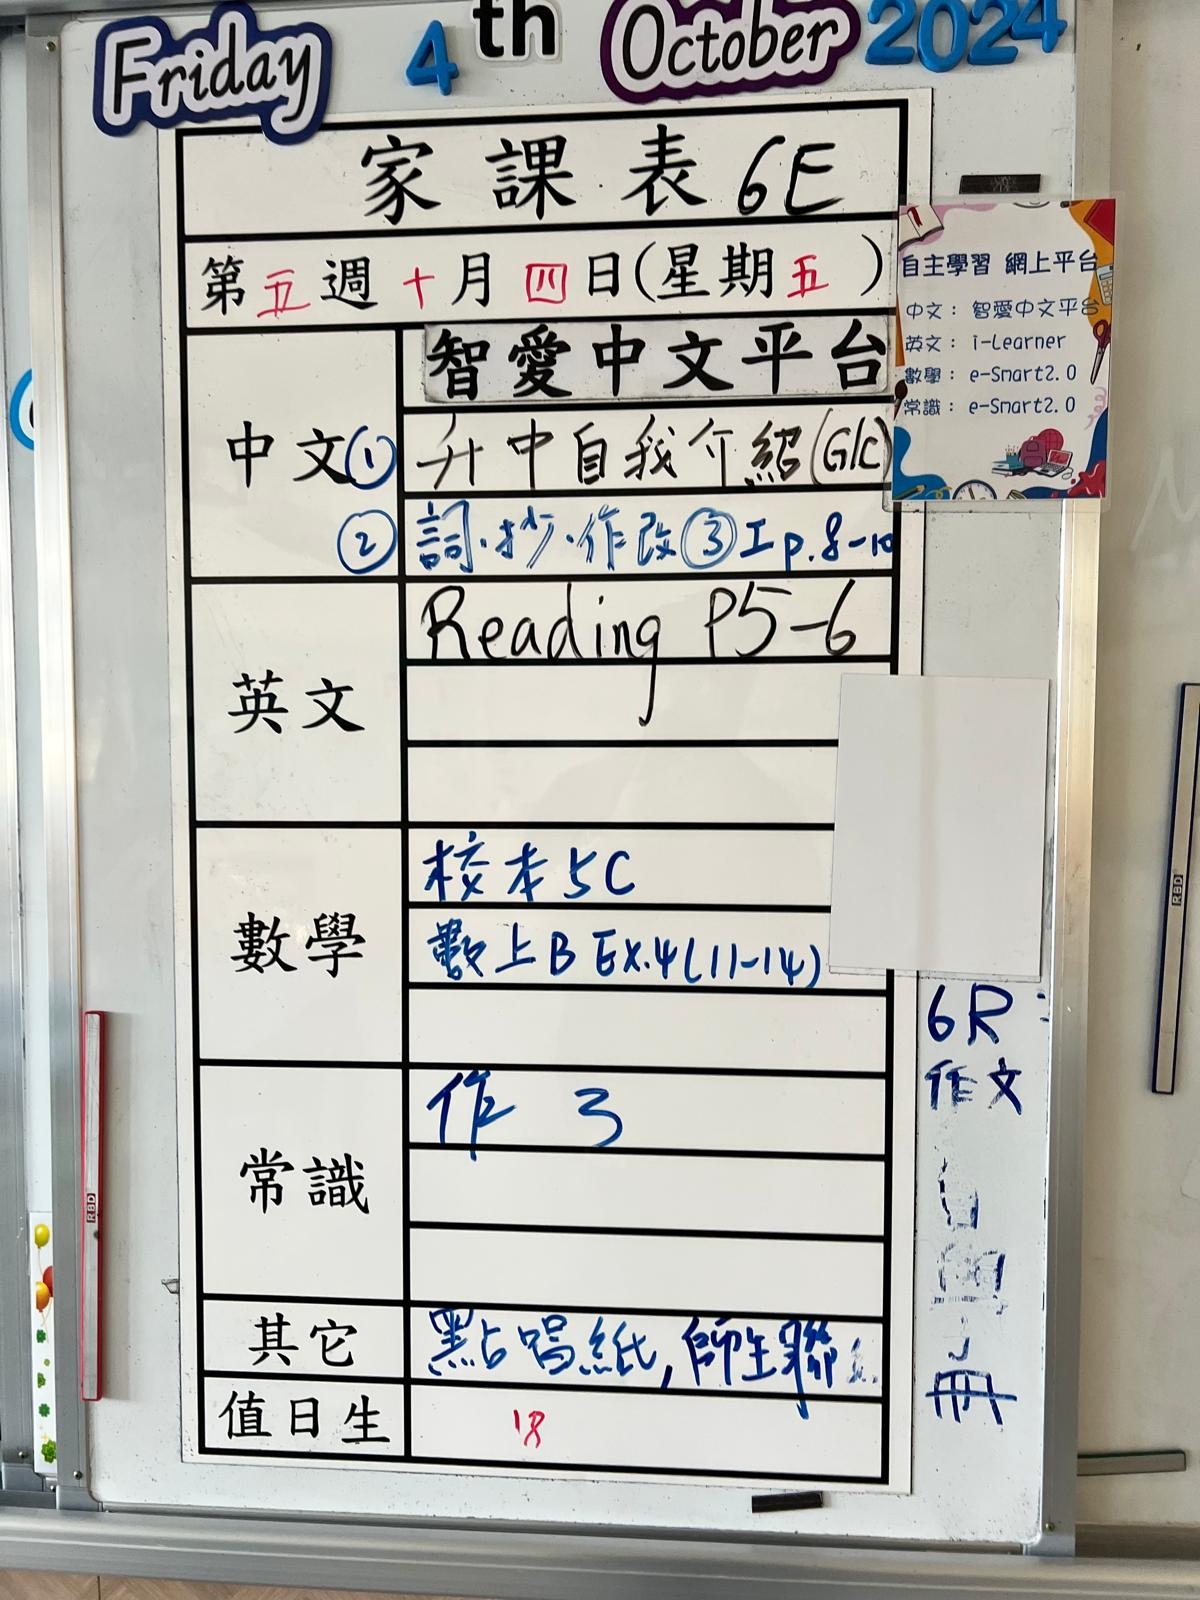 Friday 4th October 2024
家課表 6E
第五週十月四日(星期五)
中文
智愛中文平台
① 升中自我介紹(G/C)
② 詞.抄.作改③工p.8-10
英文
Reading P5-6
數學
校本5C
數上B Ex.4(11-14)
常識
作 3
其它
點唱紙,師生聯
值日生
18
自主學習 網上平台
中文: 智愛中文平台
英文: i-Learner
數學: e-Smart2.0
常識: e-Smart2.0
6R:
作文
冊
RBD
RBD